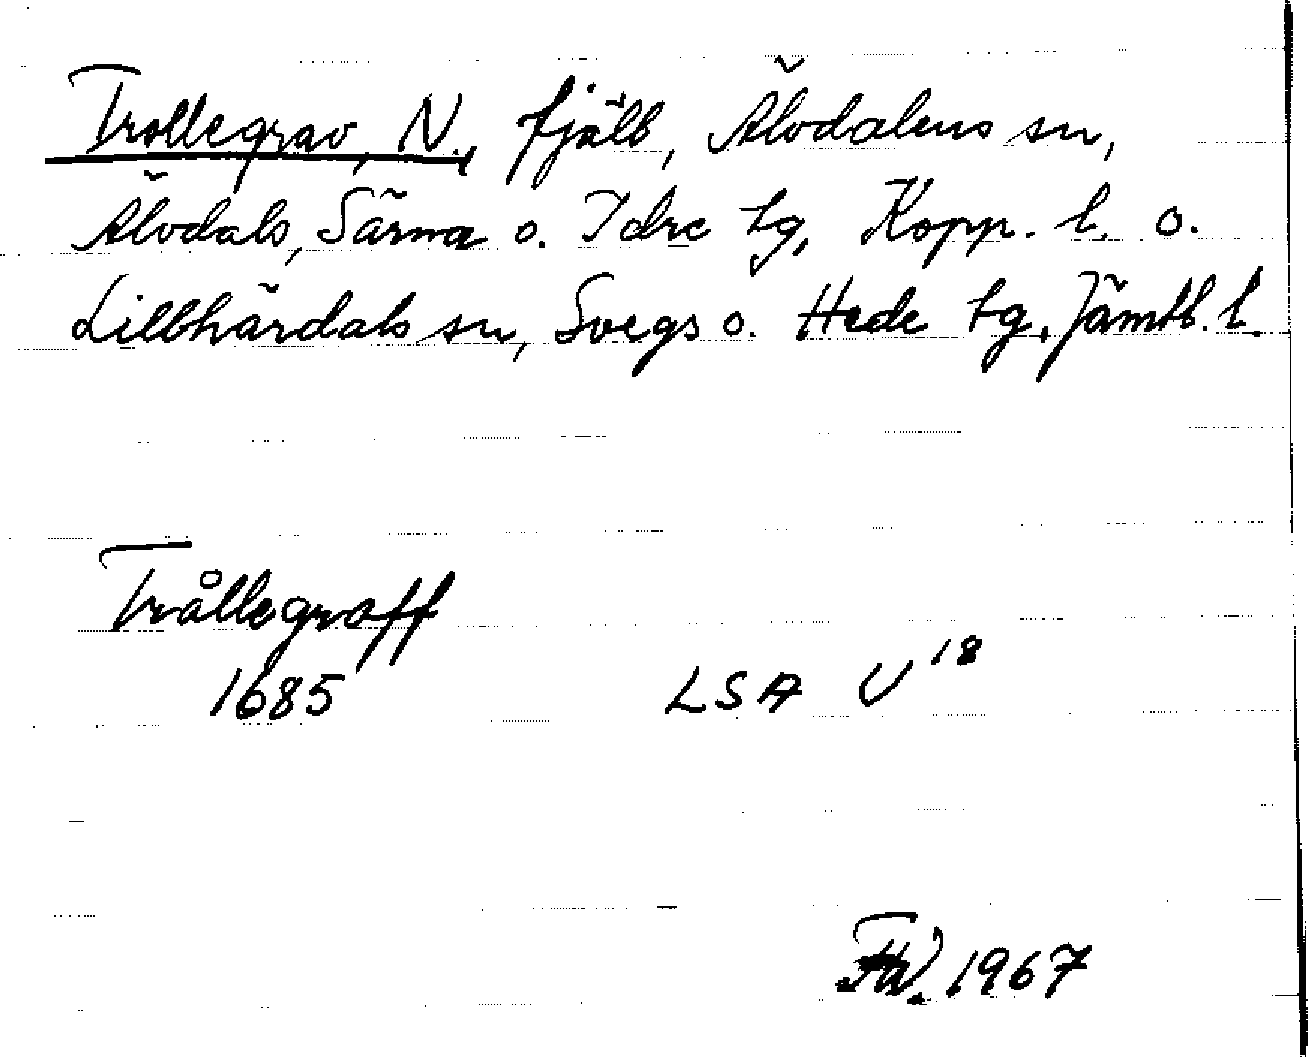 Trollegrav, N., fjäll, Älvdalens sn,
Älvdals, Särna o. Idre tg, Kopp. l. o.
Lillhärdals sn, Svegs o. Hede tg, Jämtl. l.
Trållegraff
1685 LSA U 18
1967